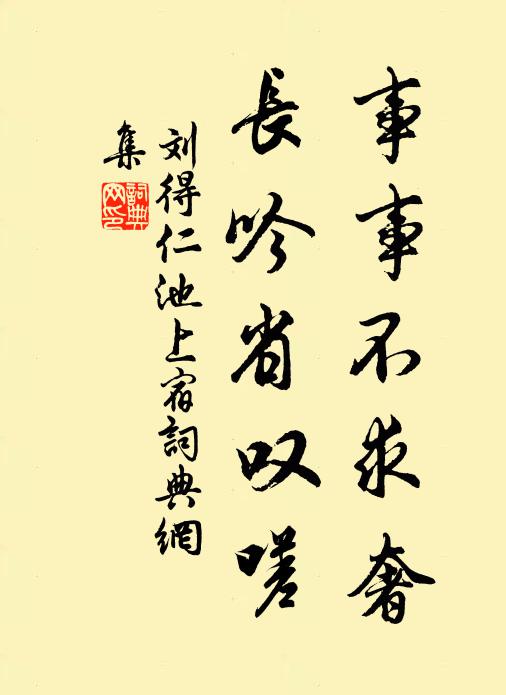 事事不求奢
長吟省叹嗟
刘得仁池上宿詞典網
集
詞典网印